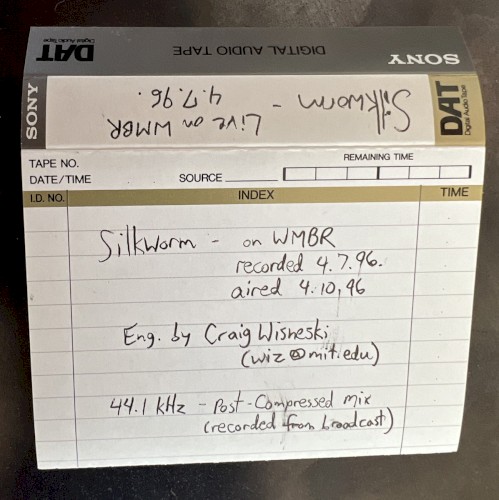 DAT
Digital Audio Tape
DIGITAL AUDIO TAPE
SONY
SONY
Silkworm -
Live on WMBR
4.7.96.
DAT
Digital Audio Tape
TAPE NO.
DATE/TIME
SOURCE
REMAINING TIME
I.D. NO.
INDEX
TIME
Silkworm - on WMBR
recorded 4.7.96.
aired 4.10.96
Eng. by Craig Wisneski
(wiz@mit.edu)
44.1 kHz - Post-Compressed mix
(recorded from broadcast)